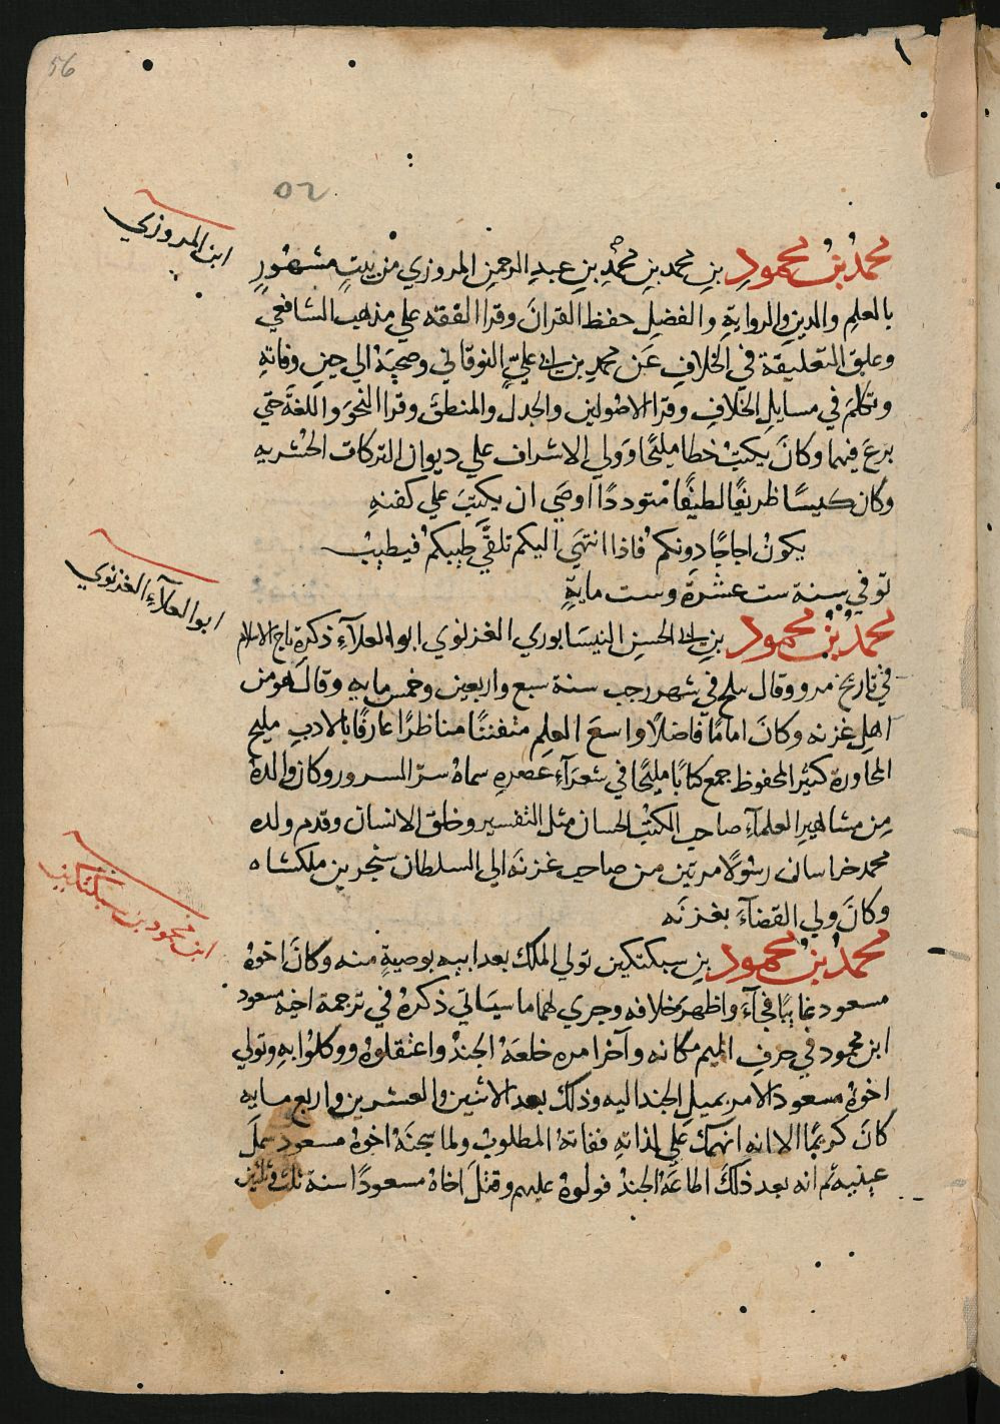 56
٥٢
ابن المروزي
محمد بن محمود بن محمد بن محمد بن عبد الرحمن المروزي من بيت مشهور
بالعلم والدين والرواية والفضل حفظ القران وقرا الفقه علي مذهب الشافعي
وعلق التعليقة في الخلاف عن محمد بن ابي علي النوقاني وصحبه الي حين وفاته
وتكلم في مسايل الخلاف وقرا الاصولين والجدل والمنطق وقرا النحو واللغة حتي
برع فيهما وكان يكتب خطا مليحا وولي الاشراف علي ديوان التركات الحشريه
وكان كيسا ظريفا لطيفا متوددا اوصي ان يكتب علي كفنه
يكون اجاجا دونكم فاذا انتهي اليكم تلقي طيبكم فيطيب
توفي سنة ست عشرة وست ماية
ابو العلآء الغزنوي
محمد بن محمود بن ابي الحسن النيسابوري الغزنوي ابو العلآء ذكره تاج الاسلام
في تاريخ مرو وقال سلخ في شهر رجب سنة سبع واربعين وخمس مايه وقال هو من
اهل غزنه وكان اماما فاضلا واسع العلم متفننا مناظرا عارفا بالادب مليح
المحاورة كثير المحفوظ جمع كتابا مليحا في شعرآء عصره سماه سر السرور وكان والده
من مشاهير العلمآء صاحب الكتب الحسان مثل التفسير وخلق الانسان وقدم ولده
محمد خراسان رسولا مرتين من صاحب غزنه الي السلطان سنجر بن ملكشاه
وكان ولي القضآء بغزنه
ابن محمود بن سبكتكين
محمد بن محمود بن سبكتكين تولي الملك بعد ابيه بوصية منه وكان اخوه
مسعود غايبا فجآء واظهر خلافه وجري لهما ما سياتي ذكره في ترجمة اخيه مسعود
ابن محمود في حرف الميم مكانه وآخر امره خلعه الجند واعتقلوه ووكلوا به وتولي
اخوه مسعود الامر بميل الجند اليه وذلك بعد الاثنين والعشرين واربع مايه
كان كريما الا انه انهمك علي لذاته ففاته المطلوب ولما سجنه اخوه مسعود سمل
عينيه ثم انه بعد ذلك اطاعه الجند فولوه عليهم وقتل اخاه مسعودا سنة ثلث وثلثين